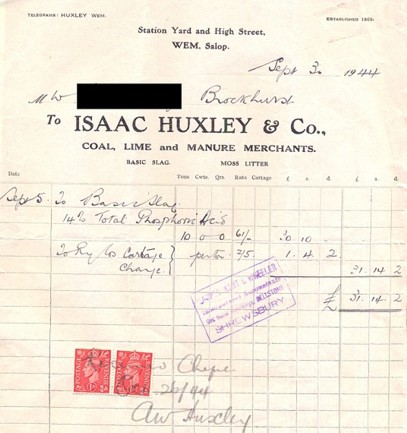 TELEGRAMS: HUXLEY WEM.
ESTABLISHED
Station Yard and High Street,
WEM. Salop.
Sept 3. 1944
Mr W
Brockhurst
To ISAAC HUXLEY & Co.,
COAL, LIME and MANURE MERCHANTS.
BASIC SLAG. MOSS LITTER
Date Tons Cwts. Qrs. Rate Cartage £ s d £ s d
Sept 5. To Basic Slag
14% Total Phosphoric Acid
10 0 0 61/- 30 10 -
To Rly Co's Cartage } per ton 2/5 1. 4. 2
Charge. } 31. 14 2
£ 31. 14 2
SHREWSBURY
Cheque
AW Huxley